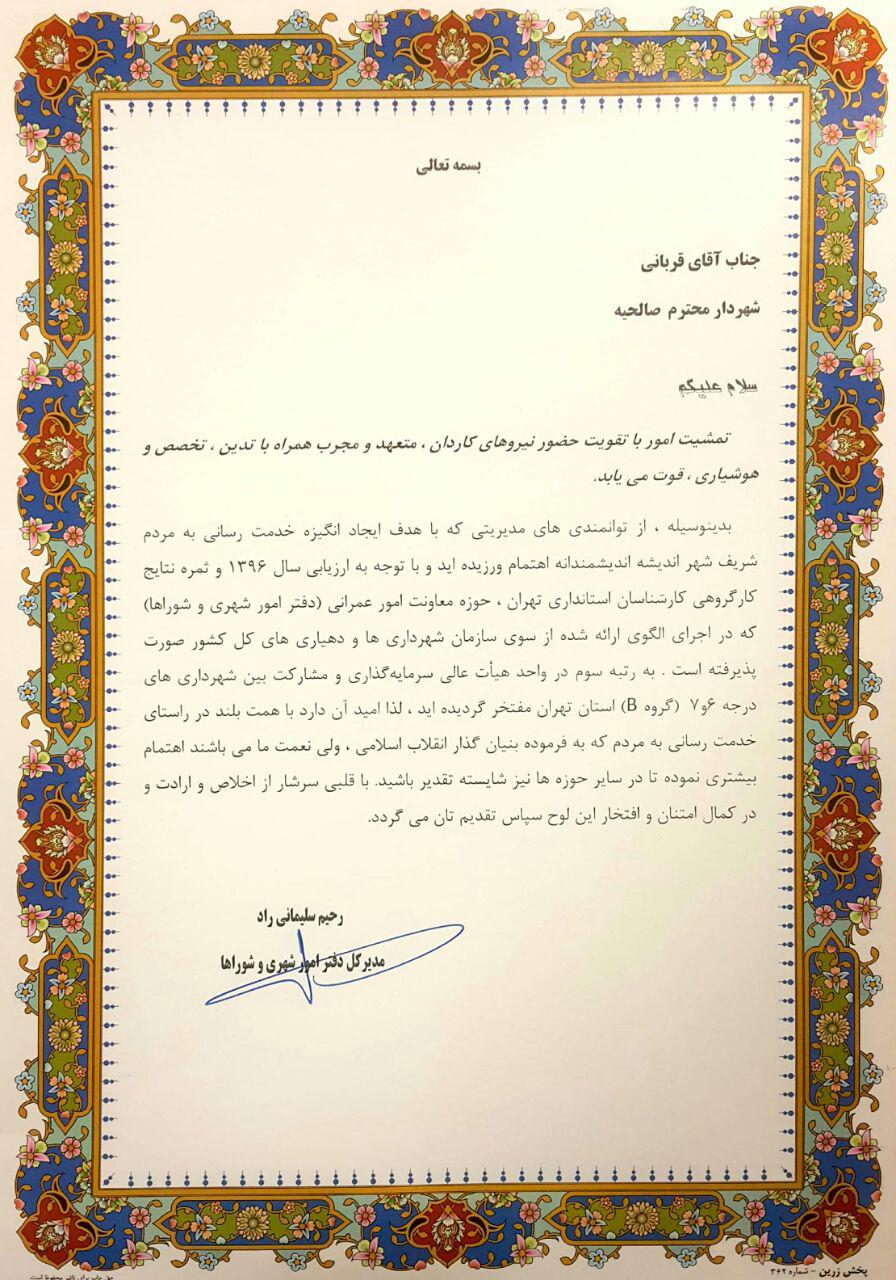 بسمه تعالی
جناب آقای قربانی
شهردار محترم صالحیه
سلام علیکم
تمشیت امور با تقویت حضور نیروهای کاردان ، متعهد و مجرب همراه با تدین ، تخصص و
هوشیاری ، قوت می یابد.
بدینوسیله ، از توانمندی های مدیریتی که با هدف ایجاد انگیزه خدمت رسانی به مردم
شریف شهر اندیشه اندیشمندانه اهتمام ورزیده اید و با توجه به ارزیابی سال ۱۳۹۶ و ثمره نتایج
کارگروهی کارشناسان استانداری تهران ، حوزه معاونت امور عمرانی (دفتر امور شهری و شوراها)
که در اجرای الگوی ارائه شده از سوی سازمان شهرداری ها و دهیاری های کل کشور صورت
پذیرفته است . به رتبه سوم در واحد هیأت عالی سرمایه‌گذاری و مشارکت بین شهرداری های
درجه ۶و۷ (گروه B) استان تهران مفتخر گردیده اید ، لذا امید آن دارد با همت بلند در راستای
خدمت رسانی به مردم که به فرموده بنیان گذار انقلاب اسلامی ، ولی نعمت ما می باشند اهتمام
بیشتری نموده تا در سایر حوزه ها نیز شایسته تقدیر باشید. با قلبی سرشار از اخلاص و ارادت و
در کمال امتنان و افتخار این لوح سپاس تقدیم تان می گردد.
رحیم سلیمانی راد
مدیرکل دفتر امور شهری و شوراها
پخش زرین - شماره ۳۶۲
حق چاپ برای ناشر محفوظ است.